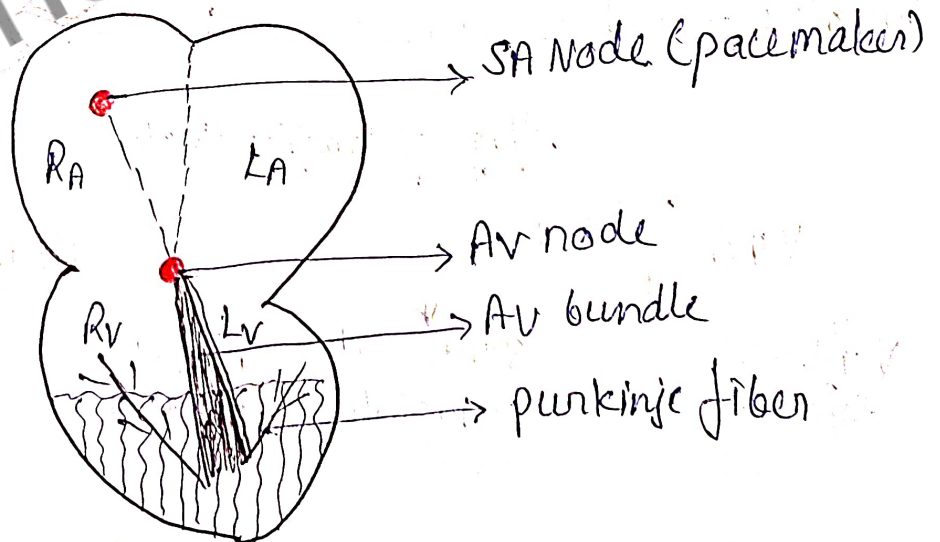 SA Node (pacemaker)
RA
LA
AV node
RV
LV
AV bundle
purkinje fiber